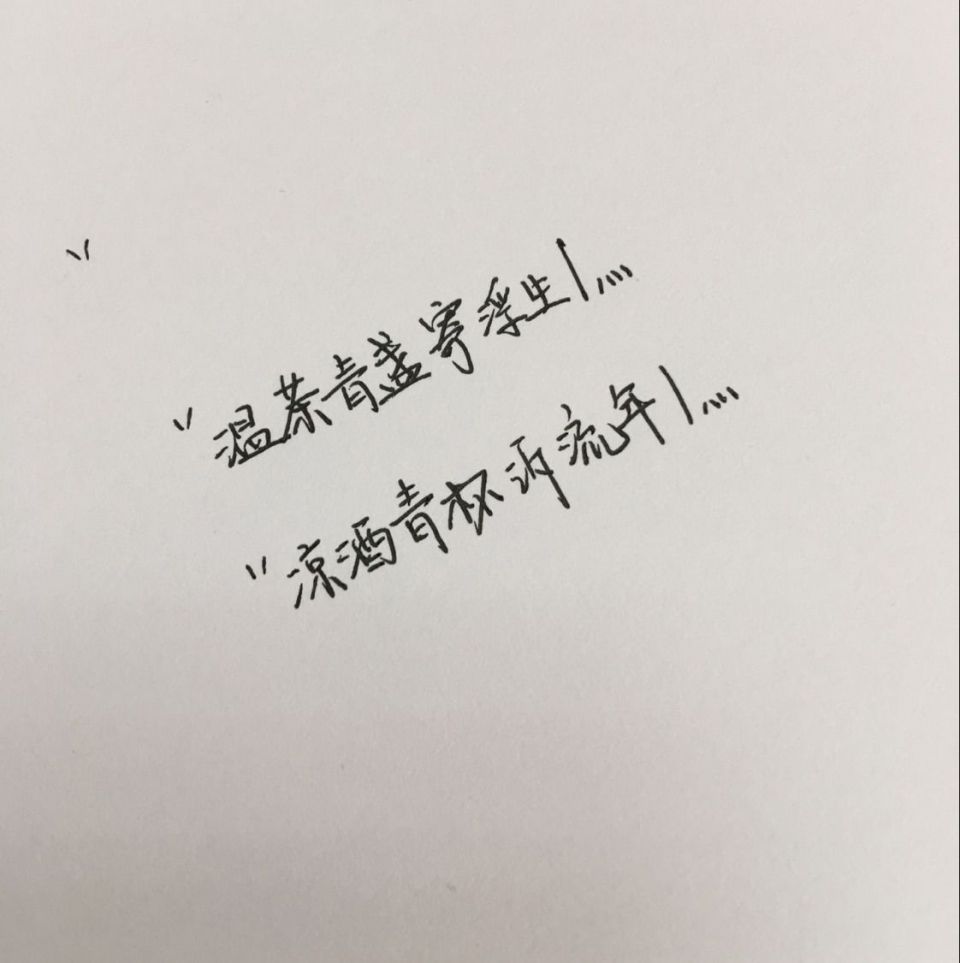 "温茶青盏寄浮生|....
"凉酒青杯诉流年|....